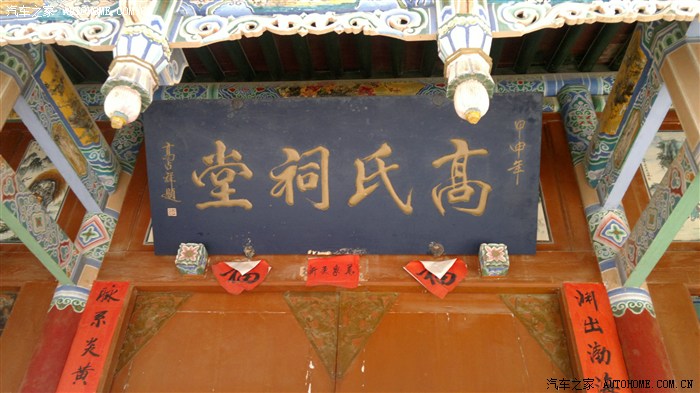 汽车之家 AUTOHOME.COM.CN
甲申年
高氏祠堂
渊出渤海
脉系炎黄
福
万象更新
福
汽车之家 AUTOHOME.COM.CN